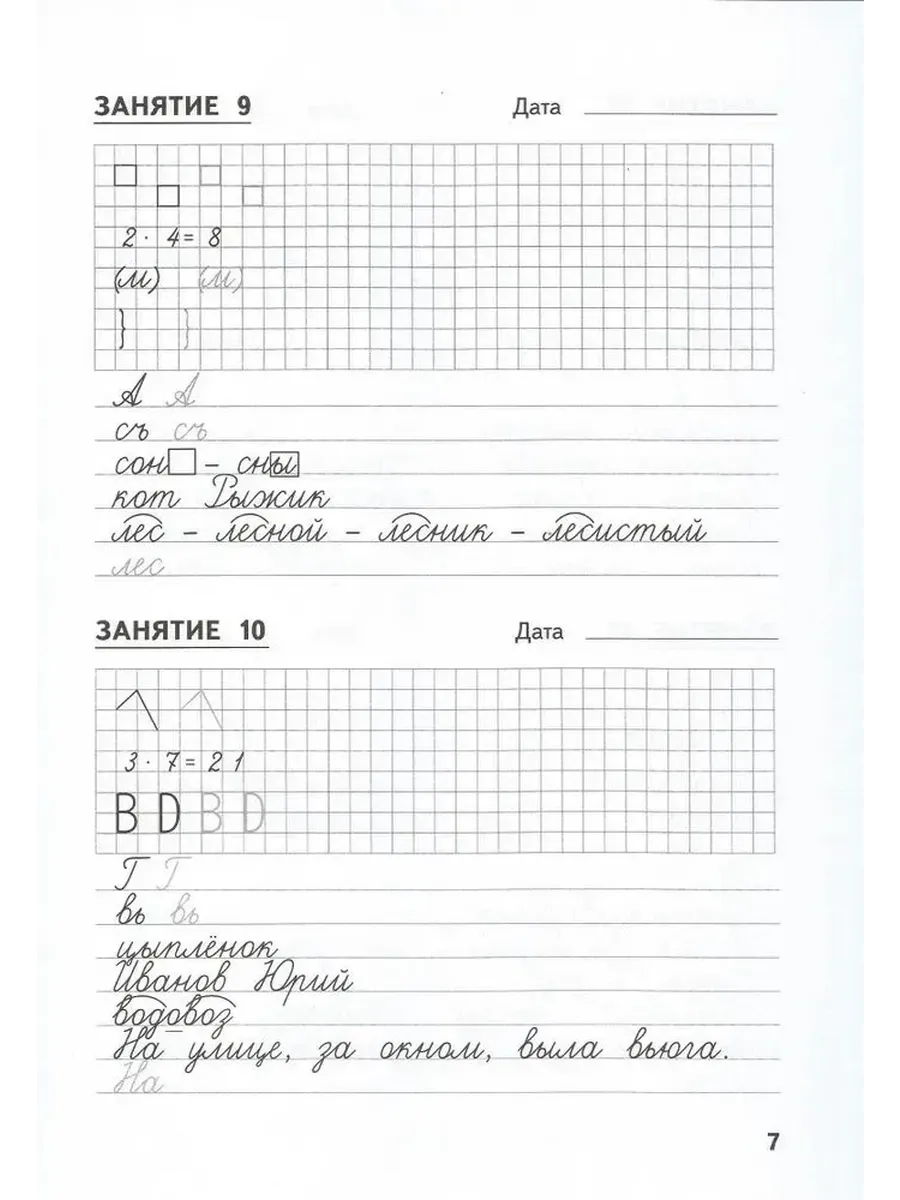 ЗАНЯТИЕ 9 Дата
2 · 4 = 8
(м) (м)
} }
А А
съ съ
сон – сны
кот Рыжик
лес – лесной – лесник – лесистый
лес
ЗАНЯТИЕ 10 Дата
3 · 7 = 21
В D В D
Г Г
вь вь
цыплёнок
Иванов Юрий
водовоз
На улице, за окном, выла вьюга.
На
7